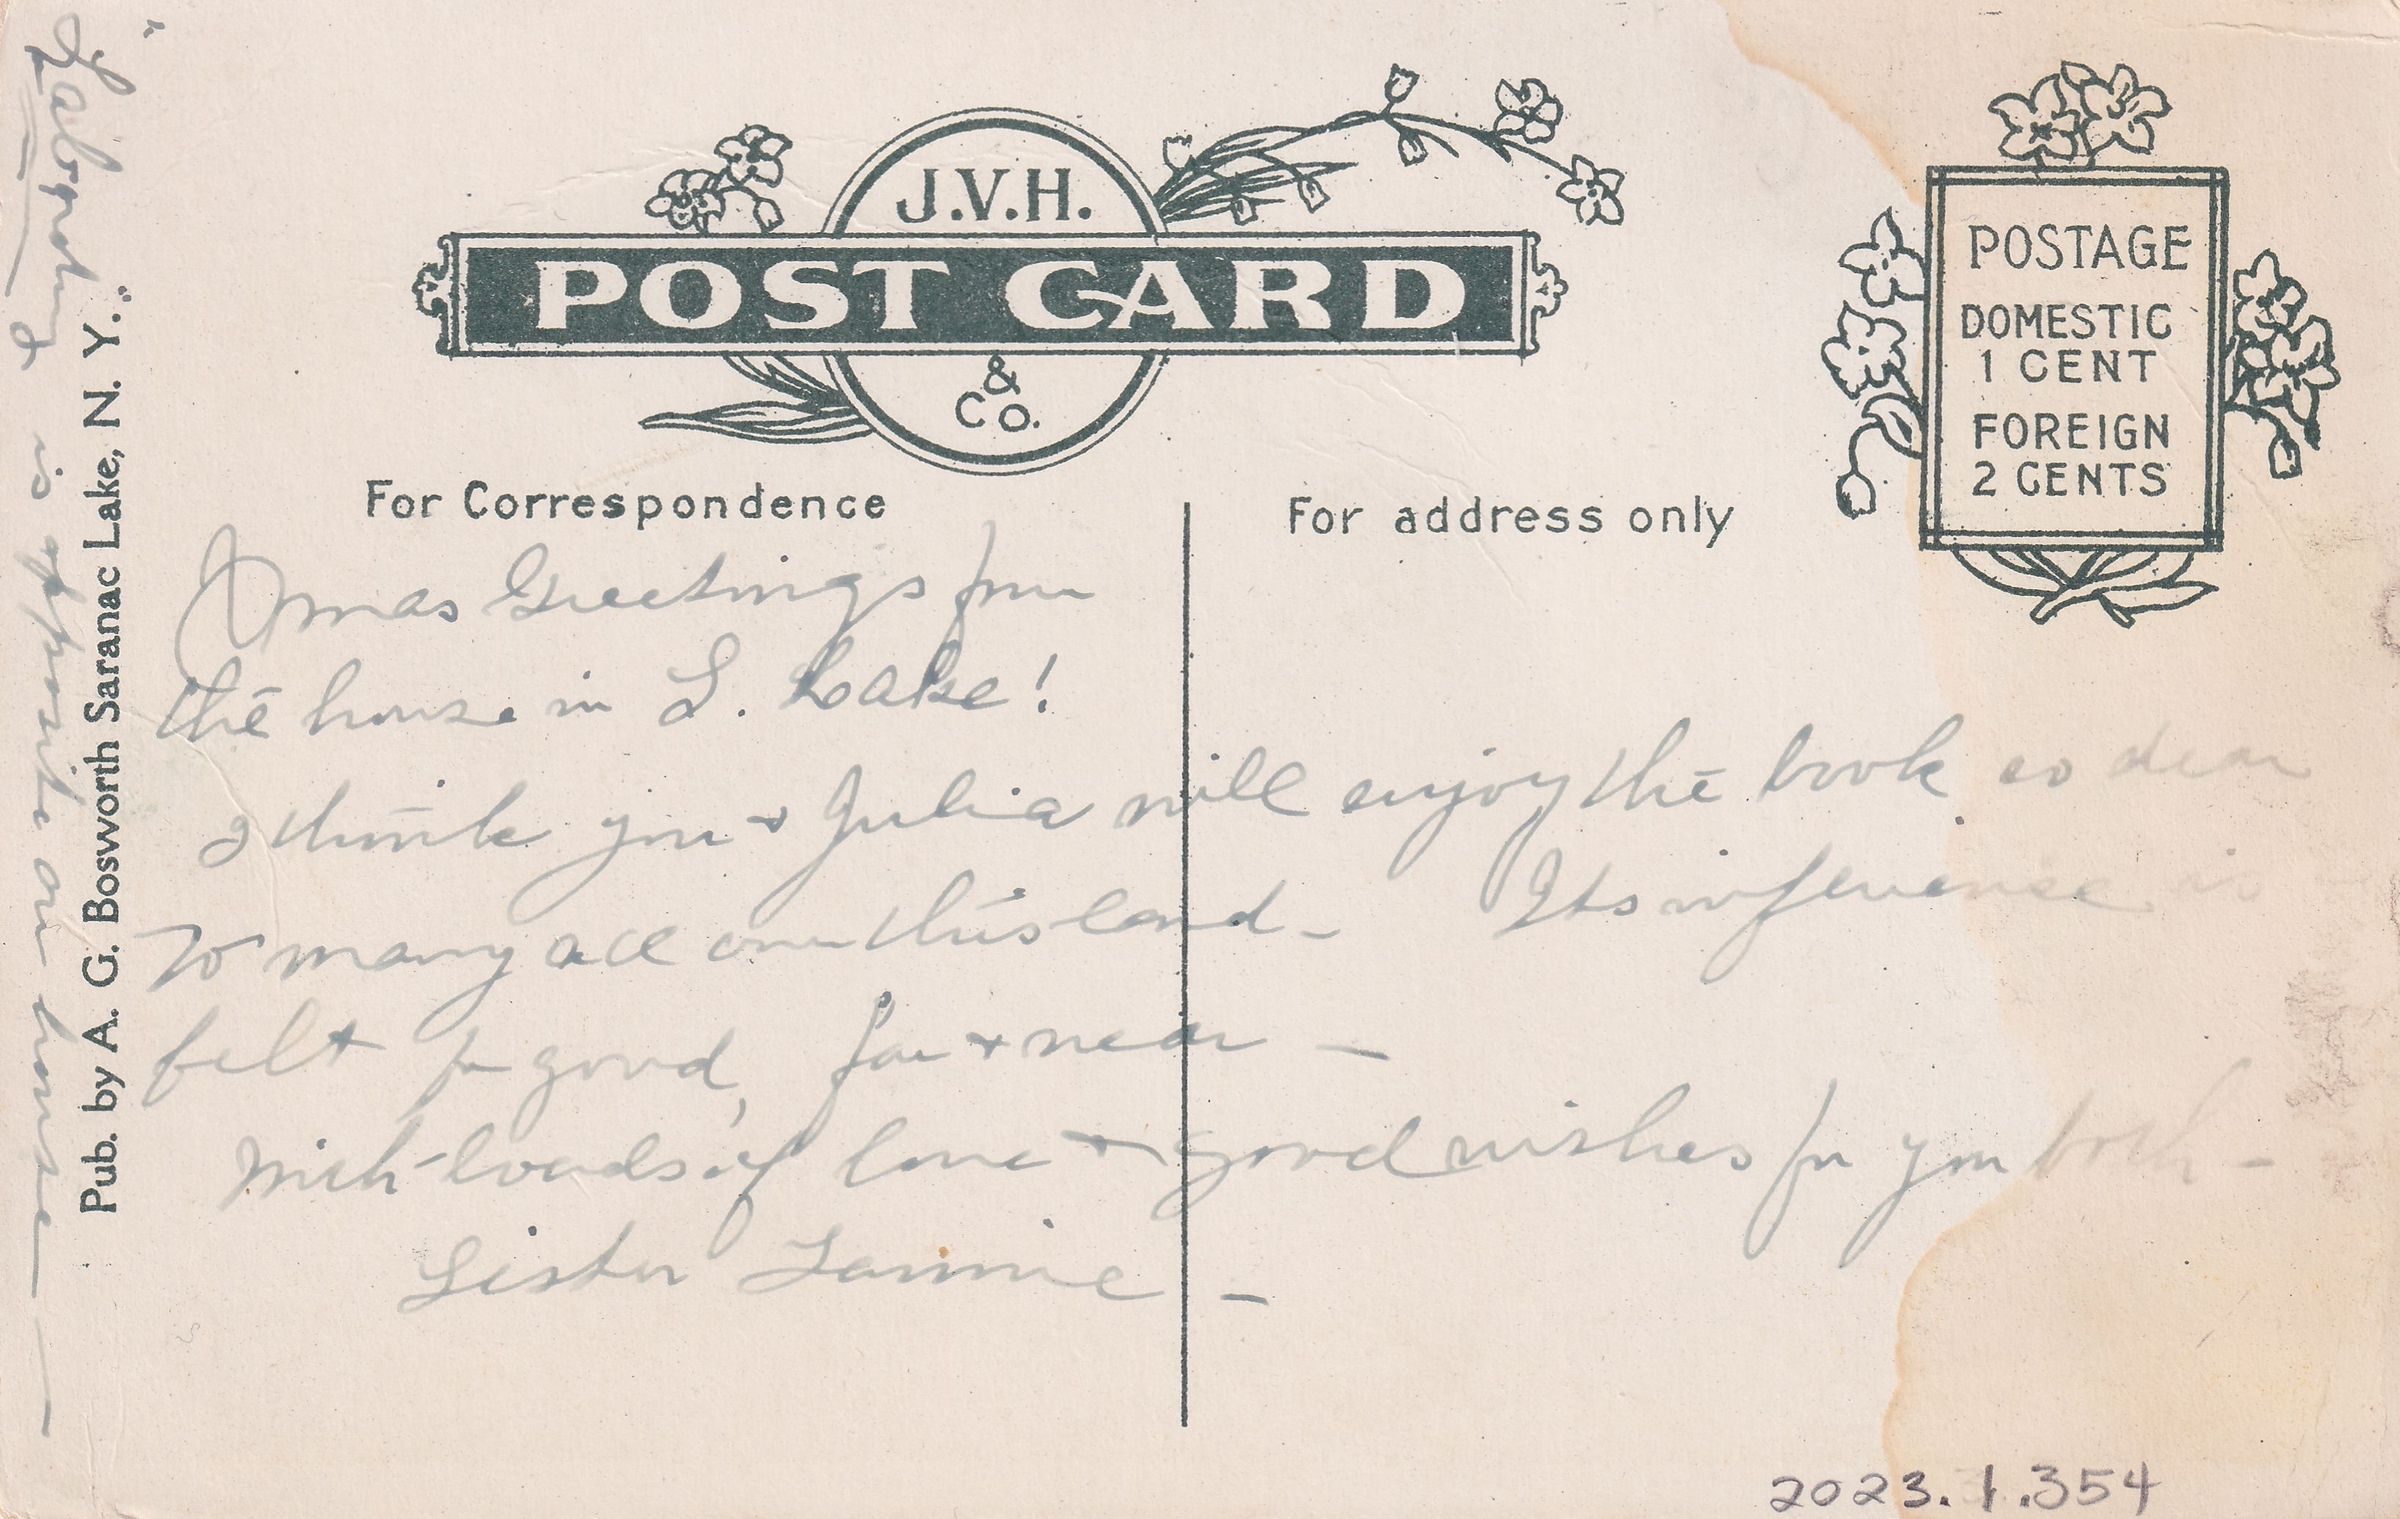 J.V.H.
POST CARD
& Co.
POSTAGE
DOMESTIC
1 CENT
FOREIGN
2 CENTS
For Correspondence
For address only
Xmas Greetings from
the house in S. Lake!
I think you & Julia will enjoy the book so dear
to many all over this land - Its influence is
felt for good, far & near -
With loads of love & good wishes for you both -
Sister Fannie -
"Laboratory" is opposite our house
Pub. by A. G. Bosworth Saranac Lake, N. Y.
2023.1.354